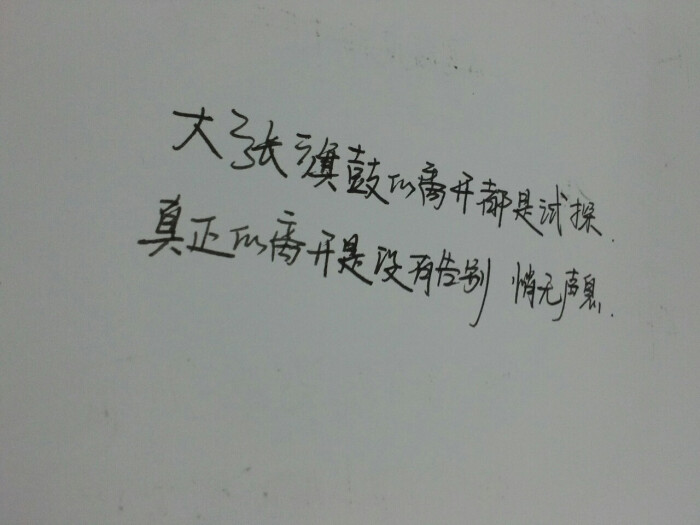 大张旗鼓的离开都是试探.
真正的离开是没有告别 悄无声息.